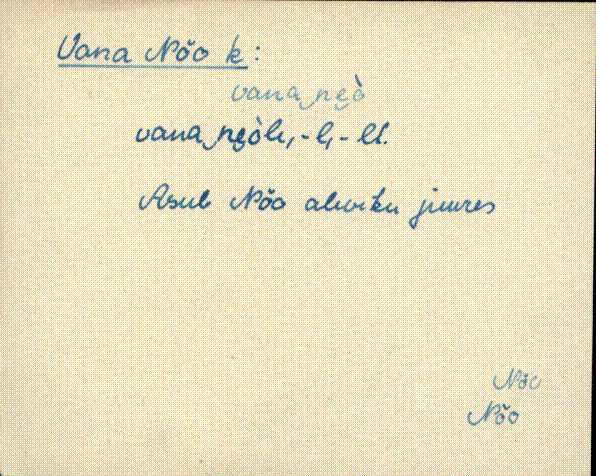 Vana Nõo k:
vana‿nęò
vana‿nęòle, -l, -lt.
Asub Nõo aleviku juures
Nõo
Nõo